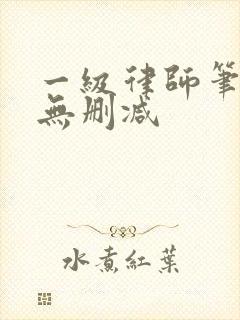 一級律師筆
無刪減
水煮紅葉